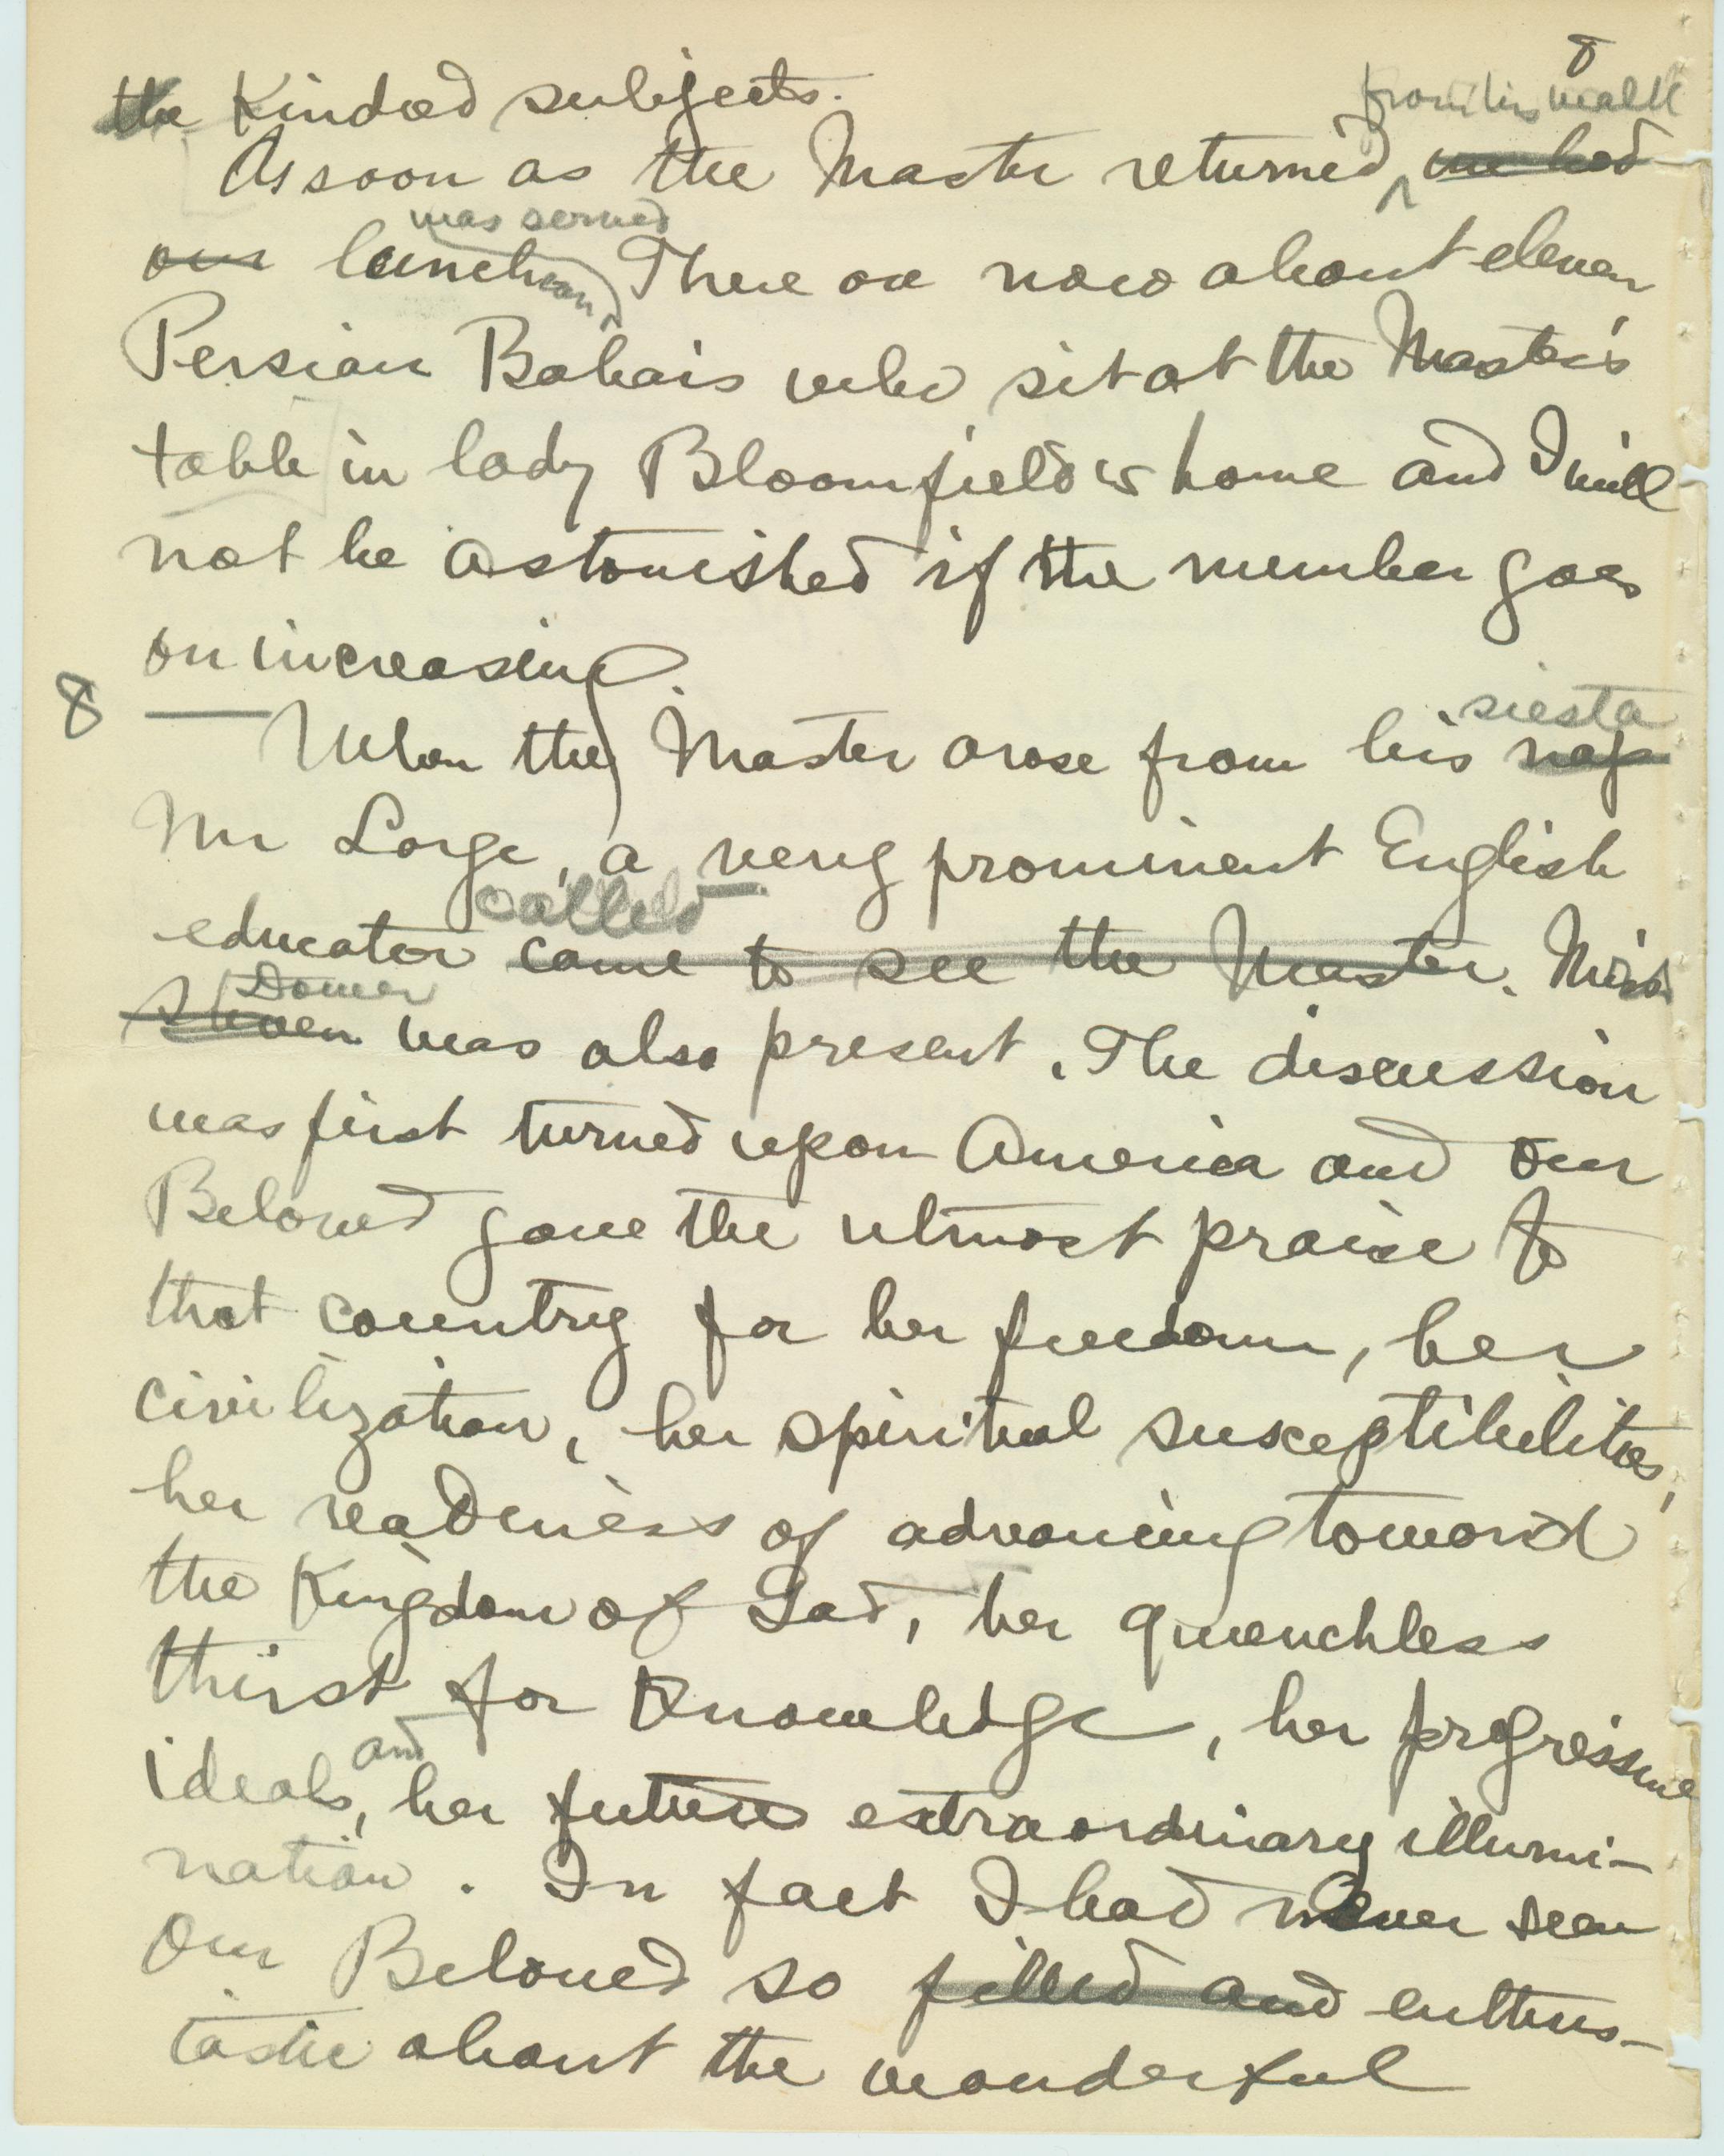 8
the Kindred subjects.
from his walk
As soon as the Master returned, we had
was served
our luncheon. There are now about eleven
Persian Bahais who sit at the Master's
table in lady Bloomfield's home and I will
not be astonished if the number goes
on increasing.
siesta
8 — When the Master arose from his nap
Mr Lorge, a very prominent English
called
educator came to see the Master. Miss
Domer
was also present. The discussion
was first turned upon America and our
Beloved gave the utmost praise to
that country for her freedom, her
civilization, her spiritual susceptibilities,
her readeness of advancing toword
the Kingdom of God, her quenchless
thirst for Knowledge, her progressive
and
ideals, her future extraordinary illumi-
nation. In fact I had never seen
Our Beloved so filled and enthus-
tastic about the wonderful